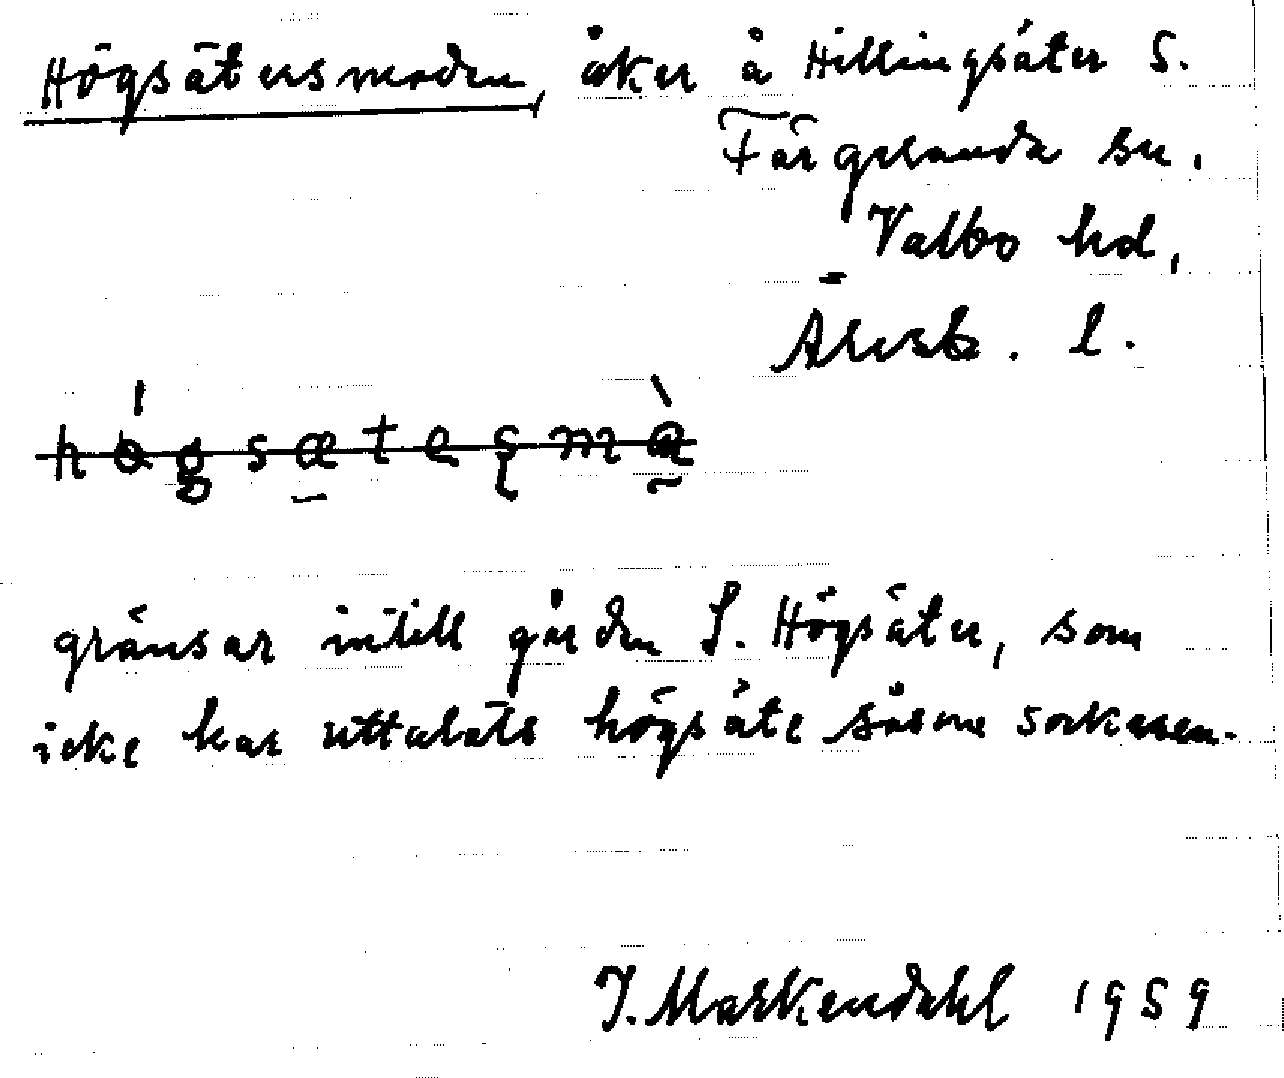 Högsätersmaden, åker å Hillingsäter S.
Färgelanda sn,
Valbo hd,
Älvsb. l.
gränsar intill gården S. Högsäter, som
icke har uttalats högsäte såsom socknen.
J. Markendahl 1959